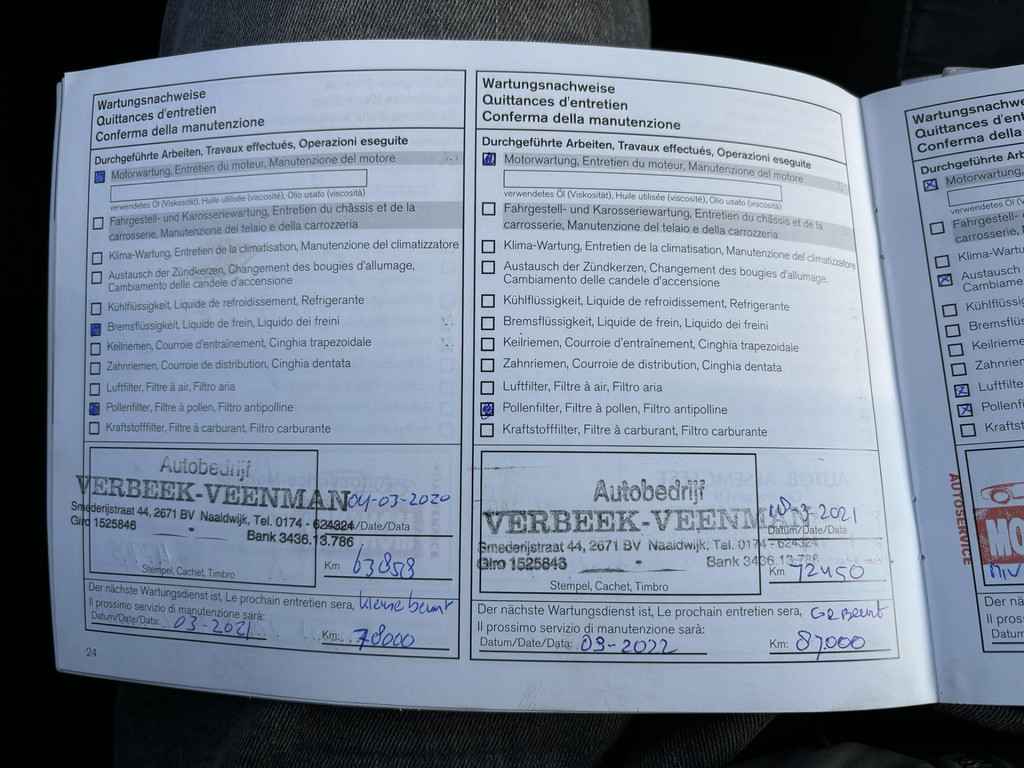 Wartungsnachweise
Quittances d'entretien
Conferma della manutenzione
Durchgeführte Arbeiten, Travaux effectués, Operazioni eseguite
Motorwartung, Entretien du moteur, Manutenzione del motore
verwendetes Öl (Viskosität), Huile utilisée (viscosité), Olio usato (viscosità)
Fahrgestell- und Karosseriewartung, Entretien du châssis et de la
carrosserie, Manutenzione del telaio e della carrozzeria
Klima-Wartung, Entretien de la climatisation, Manutenzione del climatizzatore
Austausch der Zündkerzen, Changement des bougies d'allumage,
Cambiamento delle candele d'accensione
Kühlflüssigkeit, Liquide de refroidissement, Refrigerante
Bremsflüssigkeit, Liquide de frein, Liquido dei freini
Keilriemen, Courroie d'entraînement, Cinghia trapezoidale
Zahnriemen, Courroie de distribution, Cinghia dentata
Luftfilter, Filtre à air, Filtro aria
Pollenfilter, Filtre à pollen, Filtro antipolline
Kraftstofffilter, Filtre à carburant, Filtro carburante
Autobedrijf
VERBEEK-VEENMAN
04-03-2020
Smederijstraat 44, 2671 BV Naaldwijk, Tel. 0174 - 624324
/Date/Data
Giro 1525843
Bank 3436.13.786
Km 63858
Stempel, Cachet, Timbro
Der nächste Wartungsdienst ist, Le prochain entretien sera, kleine beurt
Il prossimo servizio di manutenzione sarà:
Datum/Date/Data: 03-2021 Km: 78000
24
Wartungsnachweise
Quittances d'entretien
Conferma della manutenzione
Durchgeführte Arbeiten, Travaux effectués, Operazioni eseguite
Motorwartung, Entretien du moteur, Manutenzione del motore
verwendetes Öl (Viskosität), Huile utilisée (viscosité), Olio usato (viscosità)
Fahrgestell- und Karosseriewartung, Entretien du châssis et de la
carrosserie, Manutenzione del telaio e della carrozzeria
Klima-Wartung, Entretien de la climatisation, Manutenzione del climatizzatore
Austausch der Zündkerzen, Changement des bougies d'allumage,
Cambiamento delle candele d'accensione
Kühlflüssigkeit, Liquide de refroidissement, Refrigerante
Bremsflüssigkeit, Liquide de frein, Liquido dei freini
Keilriemen, Courroie d'entraînement, Cinghia trapezoidale
Zahnriemen, Courroie de distribution, Cinghia dentata
Luftfilter, Filtre à air, Filtro aria
Pollenfilter, Filtre à pollen, Filtro antipolline
Kraftstofffilter, Filtre à carburant, Filtro carburante
Autobedrijf
VERBEEK-VEENMAN
-3-2021
Datum/Date/Data
Smederijstraat 44, 2671 BV Naaldwijk, Tel. 0174 - 624324
Giro 1525843
Bank 3436.13.786
Km 72450
Stempel, Cachet, Timbro
Der nächste Wartungsdienst ist, Le prochain entretien sera, GR Beurt
Il prossimo servizio di manutenzione sarà:
Datum/Date/Data: 03-2022 Km: 87.000
Wartungsnachwe
Quittances d'ent
Conferma della m
Durchgeführte Arb
Motorwartung,
verwendetes Öl (V
Fahrgestell- u
carrosserie, M
Klima-Wartu
Austausch
Cambiame
Kühlflüssig
Bremsflüss
Keilriemen
Zahnrieme
Luftfilter
Pollenfi
Kraftst
AUTOSERVICE
MO
Der nä
Il pross
Datum/D